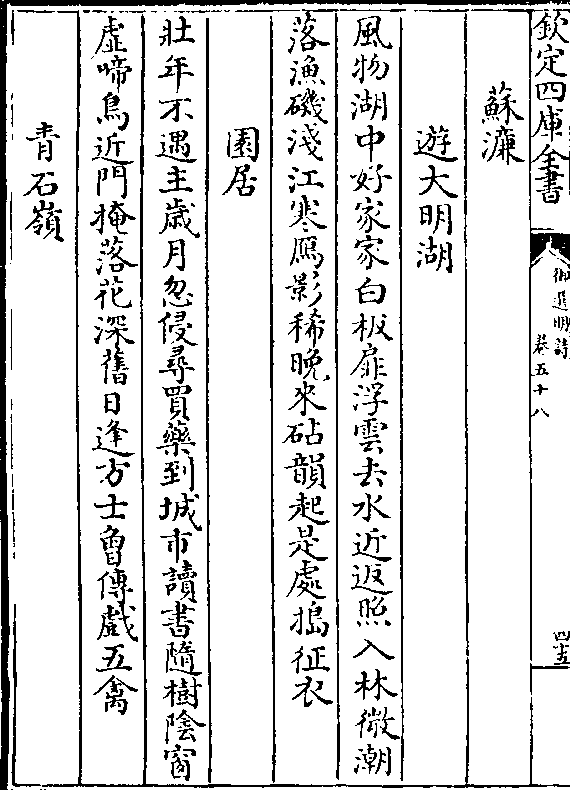 欽定四庫全書
御選明詩
卷五十八
四十五
蘇濂
遊大明湖
風物湖中好家家白板扉浮雲去水近返照入林微潮
落漁磯淺江寒鴈影稀晚來砧韻起是處搗征衣
園居
壯年不遇主歳月忽侵尋買藥到城市讀書隨樹陰窗
虛啼鳥近門掩落花深舊日逢方士曾傳戲五禽
青石嶺